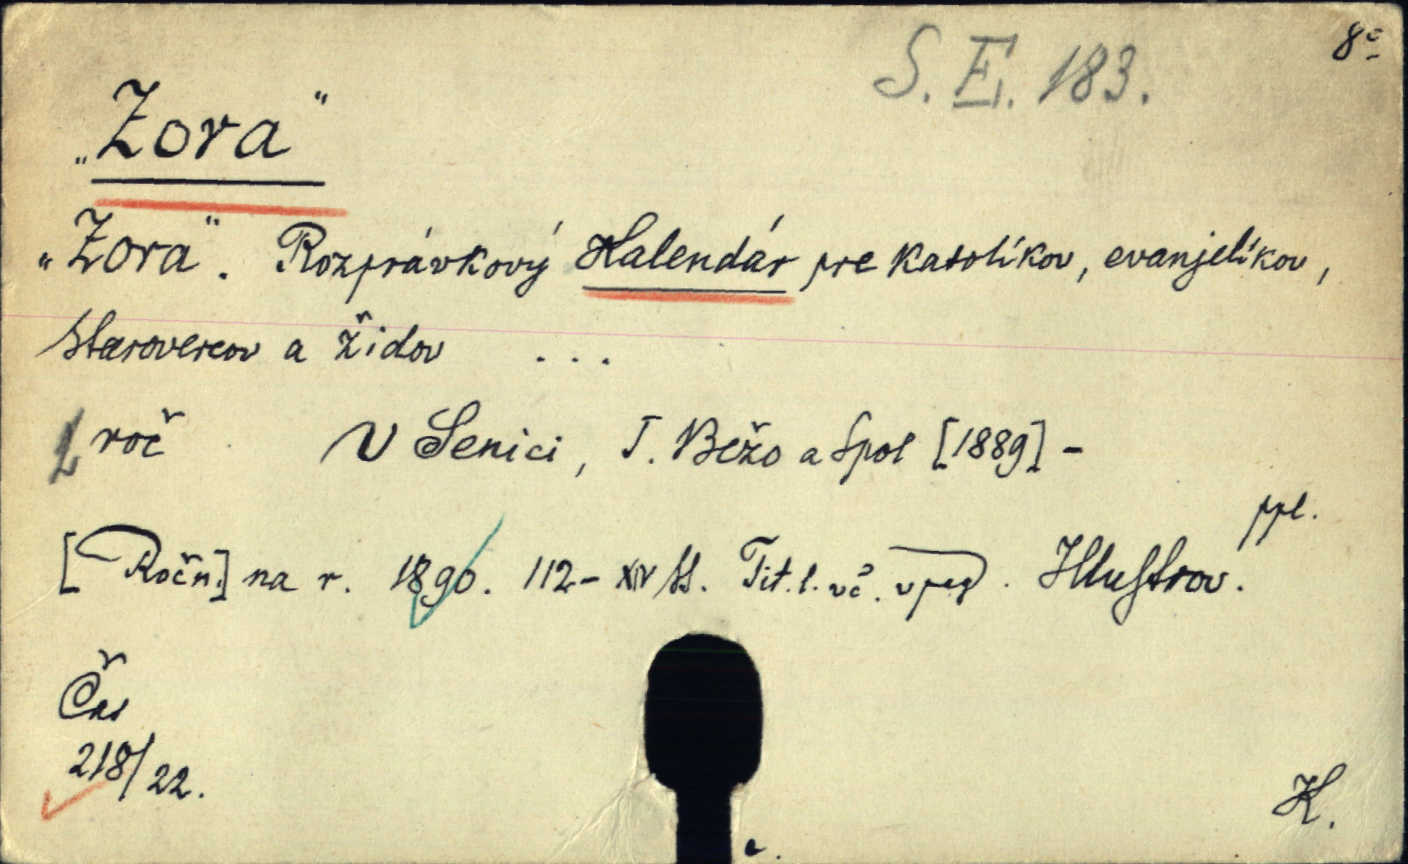 S. E. 183.
8°
„Zora“
„Zora“. Rozprávkový Kalendár pre katolíkov, evanjelíkov,
starovercov a židov ...
1 roč V Senici, J. Bežo a Spol [1889] -
ppl.
[Ročn.] na r. 1890. 112-XIV ss. Tit. l. vč. v pag. Illustrov.
Čas
218/22.
K.